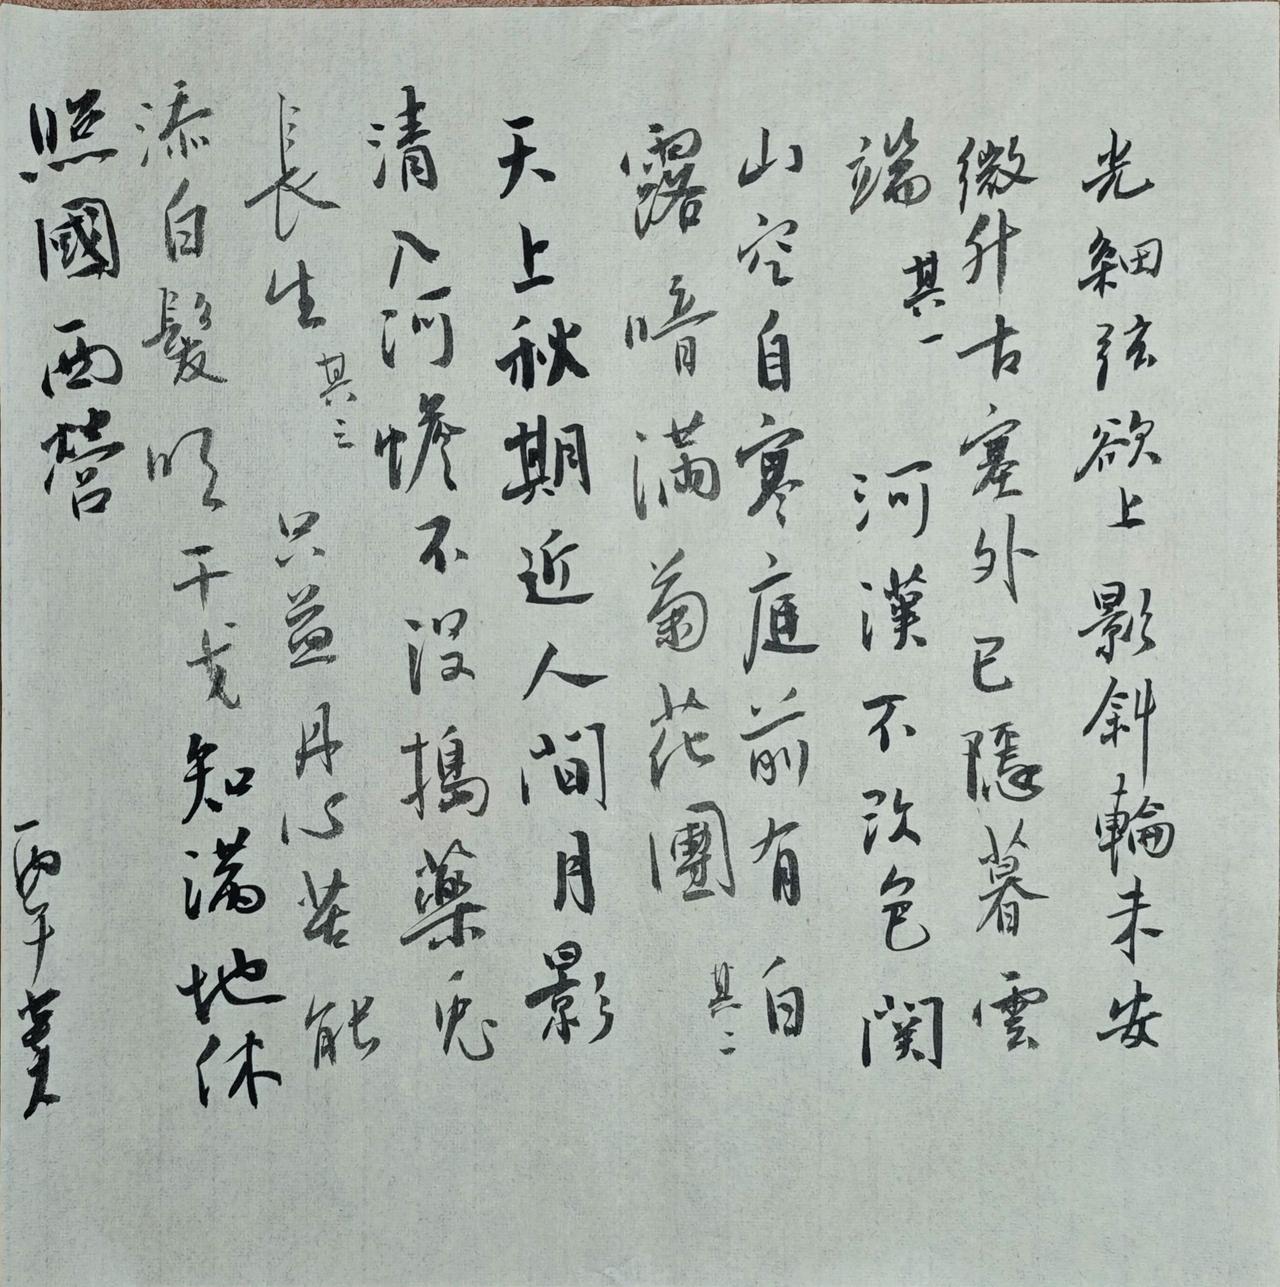 光細弦欲上影斜輪未安
微升古塞外已隱暮雲
端 其一 河漢不改色關
山空自寒庭前有白
露暗滿菊花團 其二
天上秋期近人間月影
清入河蟾不没搗藥兔
長生 其三 只益丹心苦能
添白髮明干戈知滿地休
照國西營
丙午